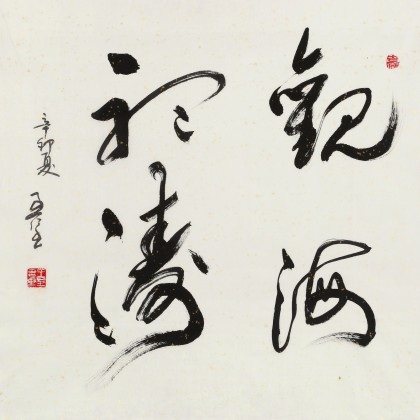 觀海
聽濤
辛卯夏